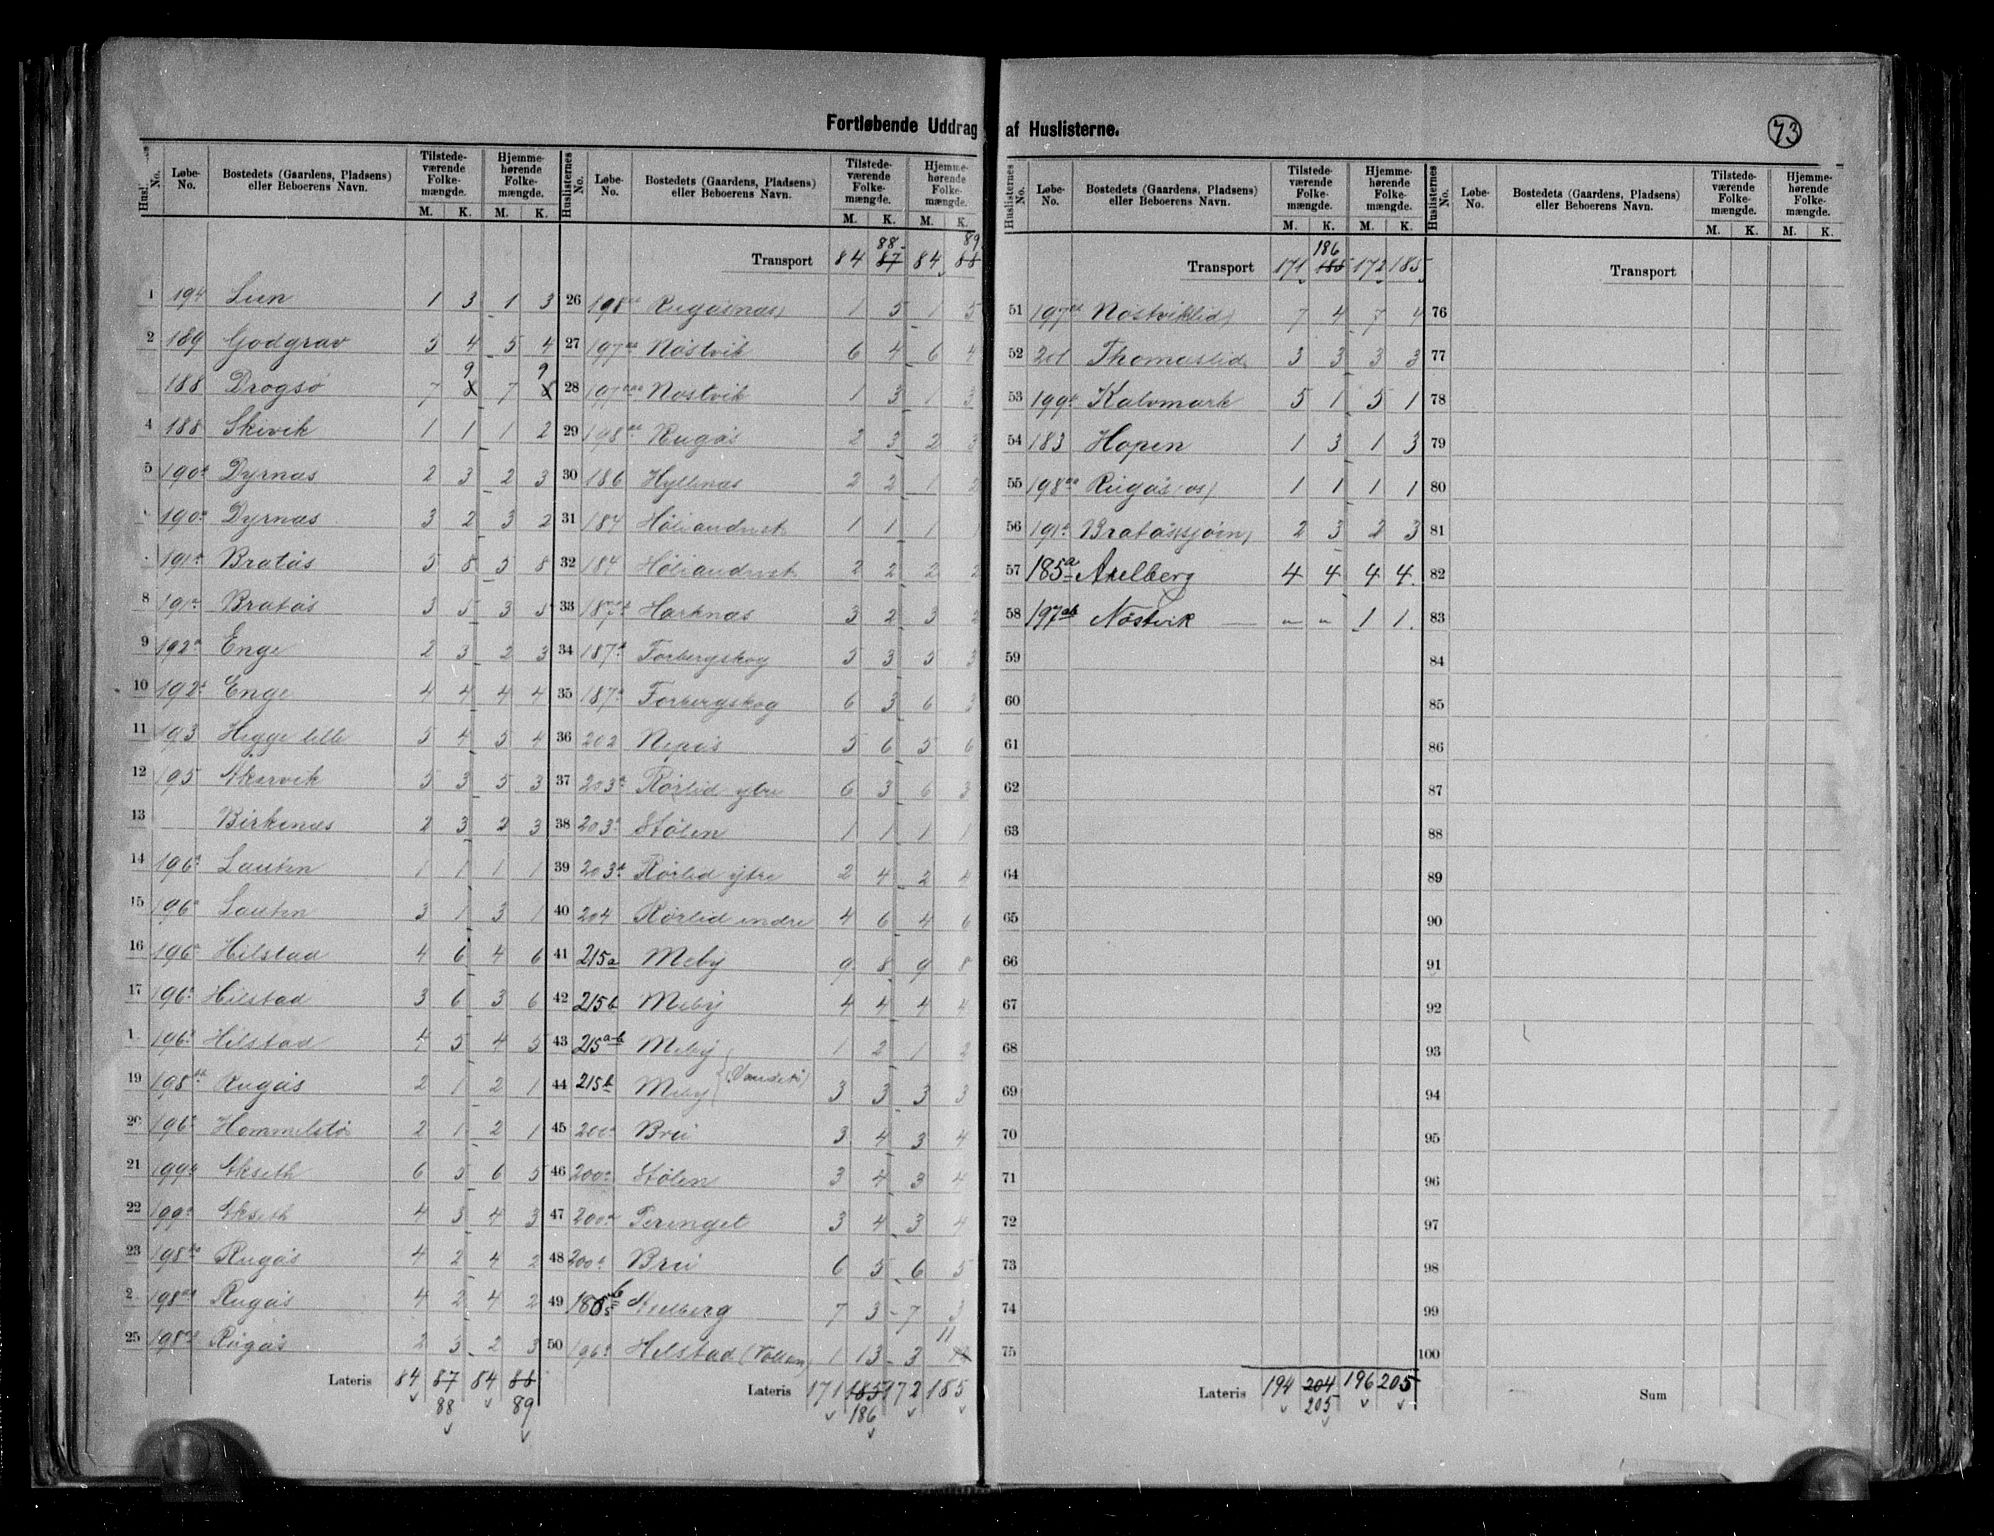 Fortløbende Uddrag af Huslisterne.
73
Huslisternes No. Løbe-No. Bostedets (Gaardens, Pladsens) eller Beboerens Navn. Tilstedeværende Folkemængde. Hjemmehørende Folkemængde.
M. K. M. K.
1 194 Lien 1 3 1 3
2 189 Godgrav 5 4 5 4
188 Drogsø 7 9 7 9
4 188 Skevik 1 1 1 2
5 190 Dyrnæs 2 3 2 3
190 Dyrnæs 3 2 3 2
191 Bratås 5 8 5 8
8 191 Bratås 3 5 3 5
9 192 Enge 2 3 2 3
10 192 Enge 4 4 4 4
11 193 Hegge lille 5 4 5 4
12 195 Skarvik 5 3 5 3
13 Birkenæs 2 3 2 3
14 196 Lauten 1 1 1 1
15 196 Lauten 3 1 3 1
16 196 Hilstad 4 6 4 6
17 196 Hilstad 3 6 3 6
1 196 Hilstad 4 5 4 5
19 198 Rugås 2 1 2 1
20 196 Hammelstø 2 1 2 1
21 199 Ekseth 6 5 6 5
22 199 Ekseth 4 3 4 3
23 198 Rugås 4 2 4 2
2 198 Rugås 4 2 4 2
25 198 Rugås 2 3 2 3
Lateris 84 87 84 88
88 89
Huslisternes No. Løbe-No. Bostedets (Gaardens, Pladsens) eller Beboerens Navn. Tilstedeværende Folkemængde. Hjemmehørende Folkemængde.
M. K. M. K.
88 89
Transport 84 87 84 88
26 198 Rugåsnæs 1 5 1 5
27 197 Nostvik 6 4 6 4
28 197 Nostvik 1 3 1 3
29 198 Rugås 2 3 2 3
30 186 Hyllnæs 2 2 1 2
31 184 1 1 1 1
32 184 2 2 2 2
33 187 Harknæs 3 2 3 2
34 187 Forbergskog 5 3 5 3
35 187 Forbergskog 6 3 6 3
36 202 Nepås 5 6 5 6
37 203 Rørlid ytre 6 3 6 3
38 203 Stølen 1 1 1 1
39 203 Rørlid ytre 2 4 2 4
40 204 Rørlid indre 4 6 4 6
41 215a Meby 9 8 9 8
42 215b Meby 4 4 4 4
43 215a-b Meby 1 2 1 2
44 215b Meby 3 3 3 3
45 200 Brei 3 4 3 4
46 200 Stølen 3 4 3 4
47 200 3 4 3 4
48 200 Brei 6 5 6 5
49 185b Axelberg 7 3 7 3
50 196 Hilstad 1 13 3 11
Lateris 171 185 172 185
186
Huslisternes No. Løbe-No. Bostedets (Gaardens, Pladsens) eller Beboerens Navn. Tilstedeværende Folkemængde. Hjemmehørende Folkemængde.
M. K. M. K.
186
Transport 171 185 172 185
51 197 Nostviklid 7 4 7 4
52 201 Thomaslid 3 3 3 3
53 199 Kalvmark 5 1 5 1
54 183 Hopen 1 3 1 3
55 198 Rugås 1 1 1 1
56 191 Bratåssjøen 2 3 2 3
57 185a Axelberg 4 4 4 4
58 197ab Nostvik – „ „ 1 1
59
60
61
62
63
64
65
66
67
68
69
70
71
72
73
74
75
Lateris 194 204 196 205
205
Huslisternes No. Løbe-No. Bostedets (Gaardens, Pladsens) eller Beboerens Navn. Tilstedeværende Folkemængde. Hjemmehørende Folkemængde.
M. K. M. K.
Transport
76
77
78
79
80
81
82
83
84
85
86
87
88
89
90
91
92
93
94
95
96
97
98
99
100
Sum